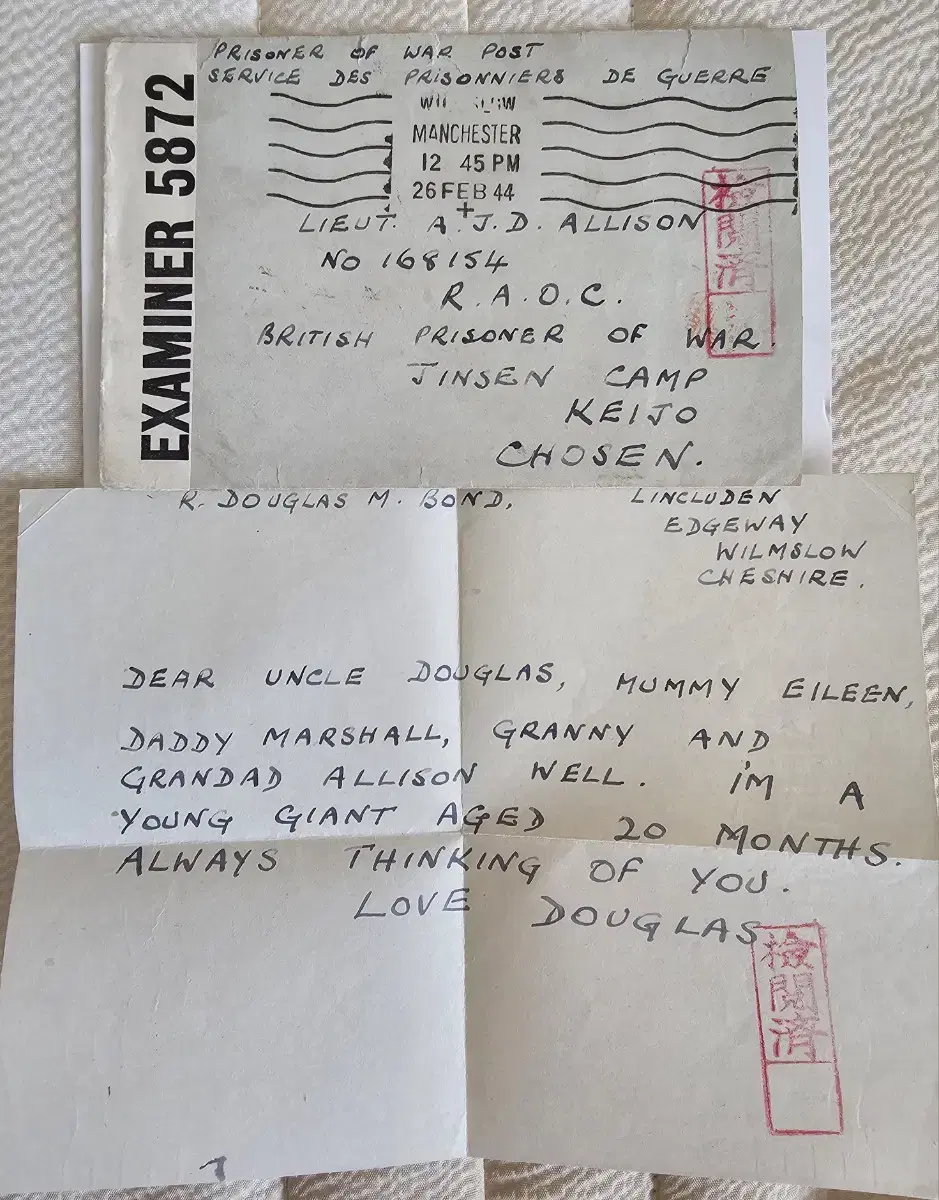 EXAMINER 5872
PRISONER OF WAR POST
SERVICE DES PRISONNIERS DE GUERRE
MANCHESTER
12 45 PM
26 FEB 44
LIEUT. A.J.D. ALLISON
No 168154
R.A.O.C.
BRITISH PRISONER OF WAR.
JINSEN CAMP
KEIJO
CHOSEN.
検閲済
R. DOUGLAS M. BOND, LINCLUDEN
EDGEWAY
WILMSLOW
CHESHIRE.
DEAR UNCLE DOUGLAS, MUMMY EILEEN,
DADDY MARSHALL, GRANNY AND
GRANDAD ALLISON WELL. I'M A
YOUNG GIANT AGED 20 MONTHS.
ALWAYS THINKING OF YOU.
LOVE DOUGLAS
検閲済